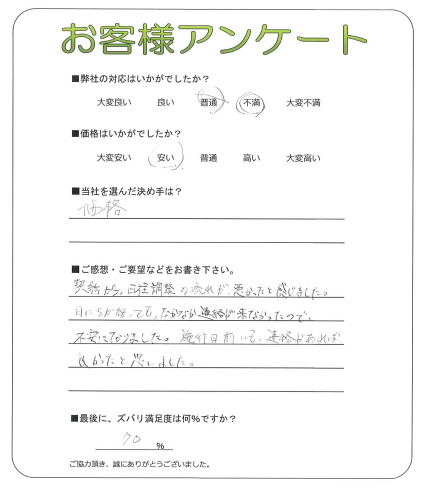 お客様アンケート
■弊社の対応はいかがでしたか？
大変良い 良い 普通 不満 大変不満
■価格はいかがでしたか？
大変安い 安い 普通 高い 大変高い
■当社を選んだ決め手は？
価格
■ご感想・ご要望などをお書き下さい。
契約から、日程調整の流れが、悪かったと感じました。
日にちが経っても、なかなか連絡が来なかったので、
不安になりました。施行日前にも、連絡があれば
良かったと思いました。
■最後に、ズバリ満足度は何％ですか？
70 ％
ご協力頂き、誠にありがとうございました。